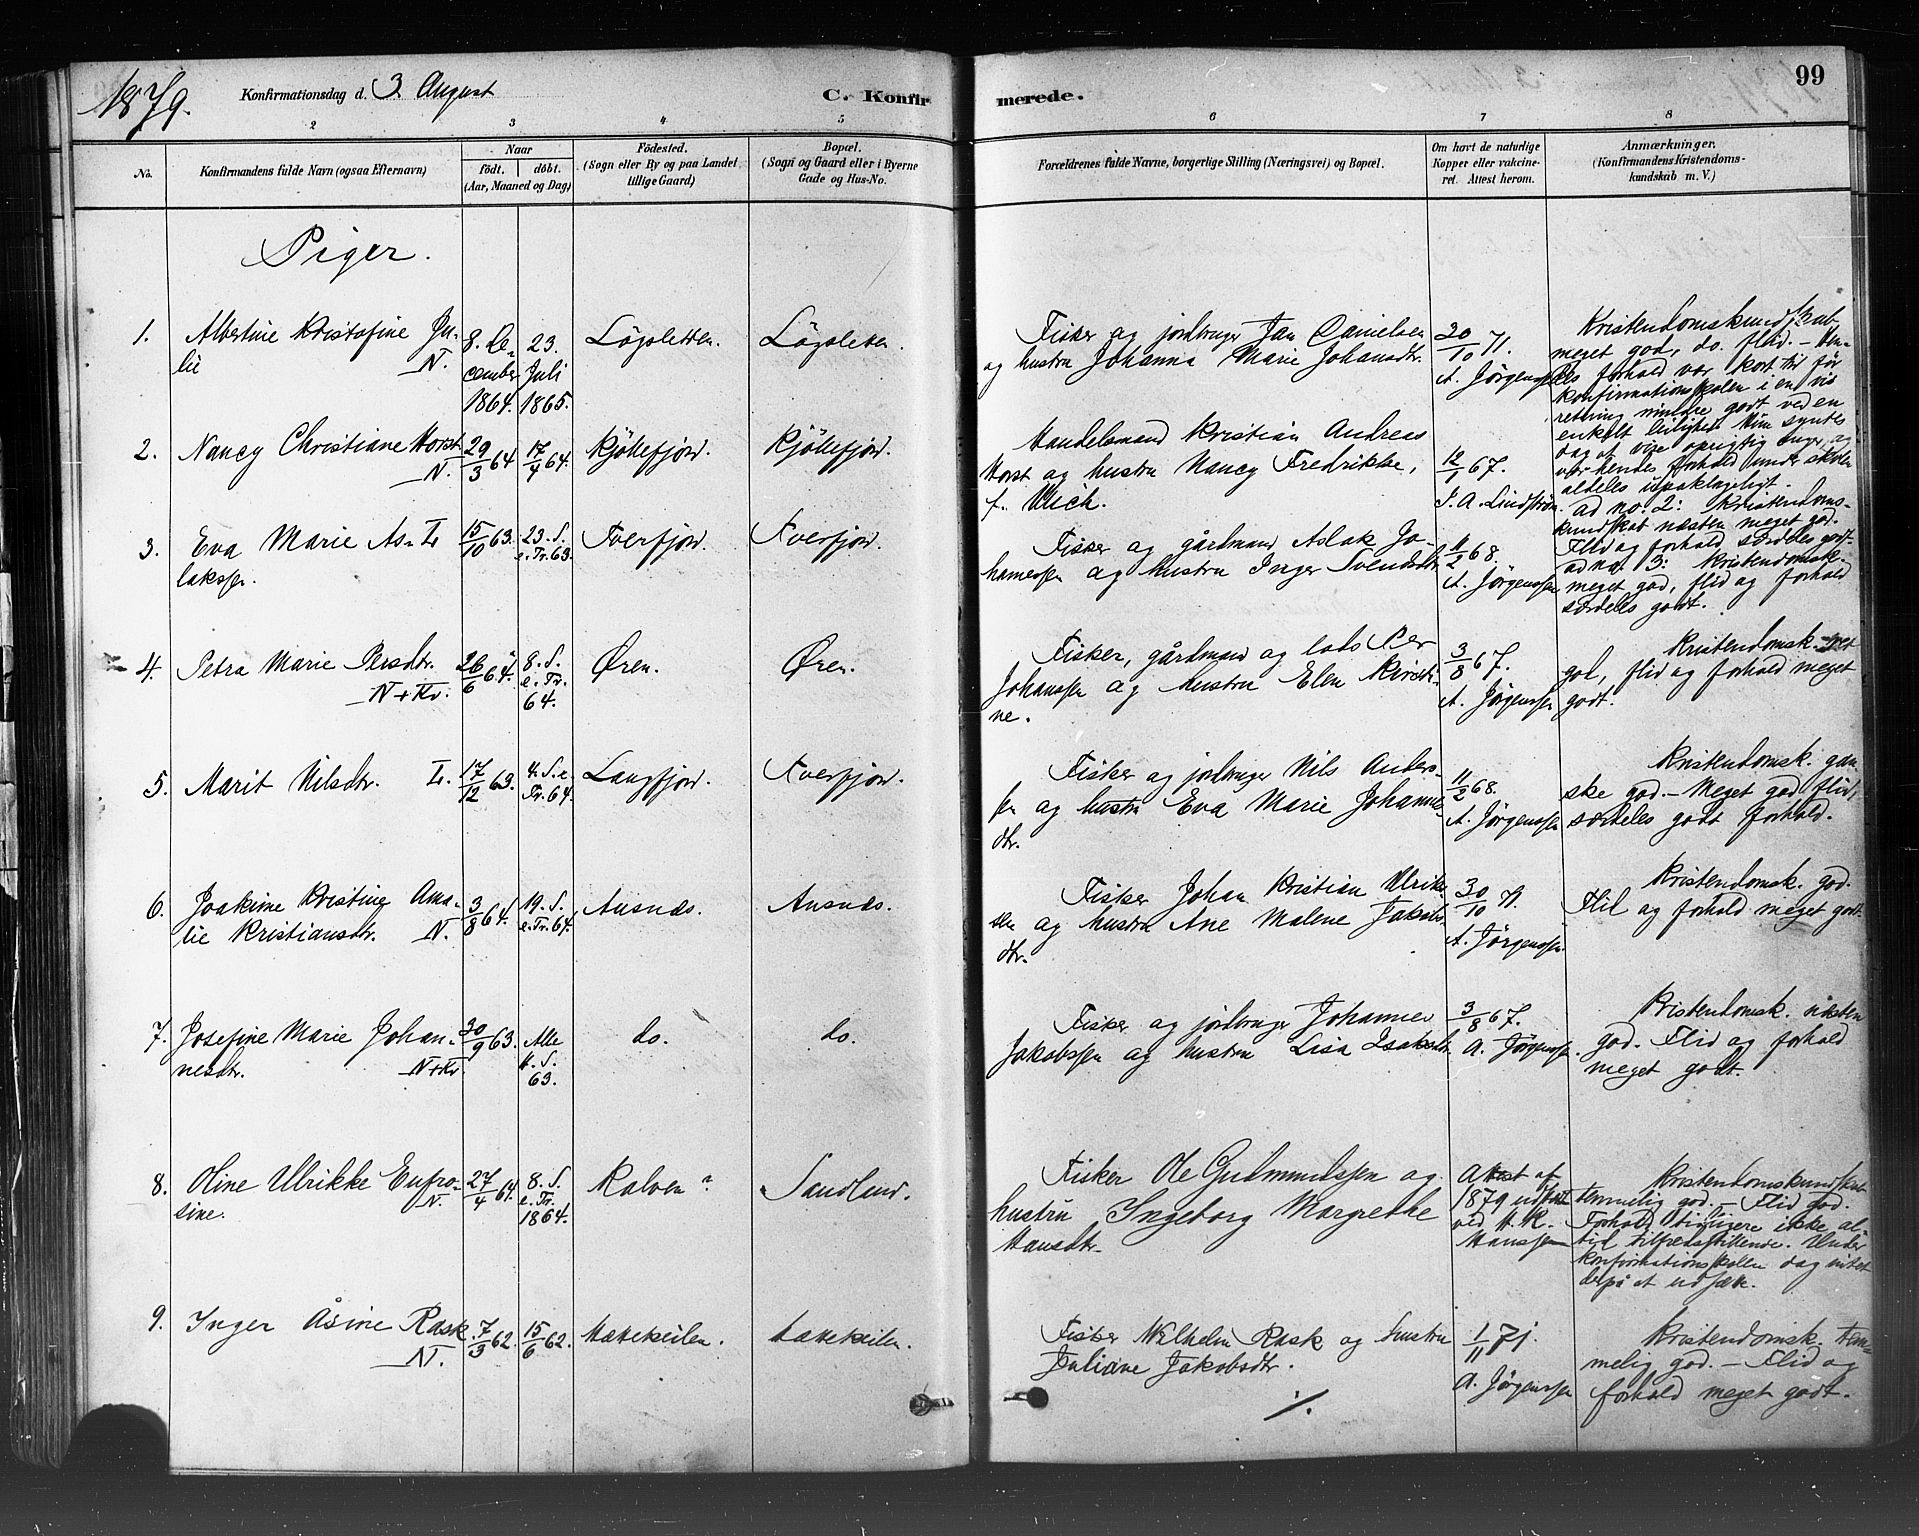 1879.
Konfirmationsdag d. 3. August
C. Konfirmerede.
99
2
3
4
5
6
7
8
No.
Konfirmandens fulde Navn (ogsaa Efternavn)
Naar
födt. döbt.
(Aar, Maaned og Dag)
Födested.
(Sogn eller By og paa Landet
tillige Gaard)
Bopæl.
(Sogn og Gaard eller i Byerne
Gade og Hus-No.
Forældrenes fulde Navne, borgerlige Stilling (Næringsvei) og Bopæl.
Om havt de naturlige
Kopper eller vakcine-
ret. Attest herom.
Anmærkninger.
(Konfirmandens Kristendoms-
kundskab m. V.)
Piger.
1. Albertine Kristofine Ju-
lie N.
8. De-
cember
1864.
23.
Juli
1865.
Lögsletten.
Lögsletten.
Fisker og jordbruger Jan Danielsen
og hustru Johanna Marie Johansdtr.
20/10 71.
A. Jörgenssen
Kristendomskundskab
meget god, do. flid. – Hen-
des forhold var kort tid för
konfirmationsskolen i en vis
retning mindre godt ved en
enkelt leilighed. Hun syntes
dog at vise oprigtig anger, og
var hendes forhold under skolen
aldeles upåklageligt.
2. Nancy Christiane Horst
N.
29/3 64
17/4 64.
Kjöllefjord.
Kjöllefjord.
Handelsmand Kristian Andreas
Horst og hustru Nancy Fredrikke,
f. Wich.
12/1 67.
J. A. Lindström
ad no. 2: Kristendoms-
kundskab næsten meget god.
Flid og forhold særdeles godt.
3. Eva Marie As- L.
lakssen.
15/10 63.
23. S.
e. Tr. 63.
Tverfjord.
Tverfjord.
Fisker og gårdmand Aslak Jo-
hannessen og hustru Inger Svendsdtr
11/2 68.
A. Jörgenssen
ad no. 3: Kristendomsk.
meget god, flid og forhold
særdeles godt.
4. Petra Marie Persdtr.
N + Kv.
26/6 64.
8. S.
e. Tr.
64.
Øren.
Øren.
Fisker, gårdmand og lods Per
Johanssen og hustru Elen Kirsti-
ne.
3/8 67.
A. Jörgenssen
Kristendomsk. meget
god, flid og forhold meget
godt.
5. Marit Nilsdtr. L.
17/12 63.
4. S. e.
Tr. 64.
Langfjord.
Tverfjord.
Fisker og jordbruger Nils Anders-
sen og hustru Eva Marie Johannes-
dtr.
11/2 68.
A. Jörgenssen
Kristendomsk. gan-
ske god. – Meget god flid,
særdeles godt forhold.
6. Joakime Kristine Ama-
lie Kristiansdtr. N.
3/8 64.
19. S.
e. Tr. 64.
Ausnæs.
Ausnæs.
Fisker Johan Kristian Ulrik-
sen og hustru Ane Malene Jakobs-
dtr.
30/10 71.
A. Jörgenssen
Kristendomsk. god.
Flid og forhold meget godt.
7. Josefine Marie Johan-
nesdtr. N + Kv
30/9 63.
Alle
H. S.
63.
do.
do.
Fisker og jordbruger Johannes
Jakobssen og hustru Lisa Isaksdtr.
3/8 67.
A. Jörgenssen.
Kristendomsk. næsten
god. Flid og forhold
meget godt.
8. Oline Ulrikke Eufro-
sine. N.
27/4 64.
8. S.
e. Tr.
1864.
Kalven?
Sandland.
Fisker Ole Gudmundssen og
hustru Ingeborg Margrethe
Hansdtr.
Attest af
1879 udstedt
ved H. K.
Hanssen
Kristendomskundskab
temmelig god. – Flid god.
Forhold tidligere ikke al-
tid tilfredsstillende. Under
konfirmationsskolen dog intet
derpå at udsætte.
9. Inger Åsine Rask
N.
7/3 62.
15/6 62.
Lakekeilen.
Fisker Wilhelm Rask og hustru
Juliane Jakobsdtr.
1/11 71.
A. Jörgenssen
Kristendomsk. tem-
melig god. – Flid og
forhold meget godt.
./.